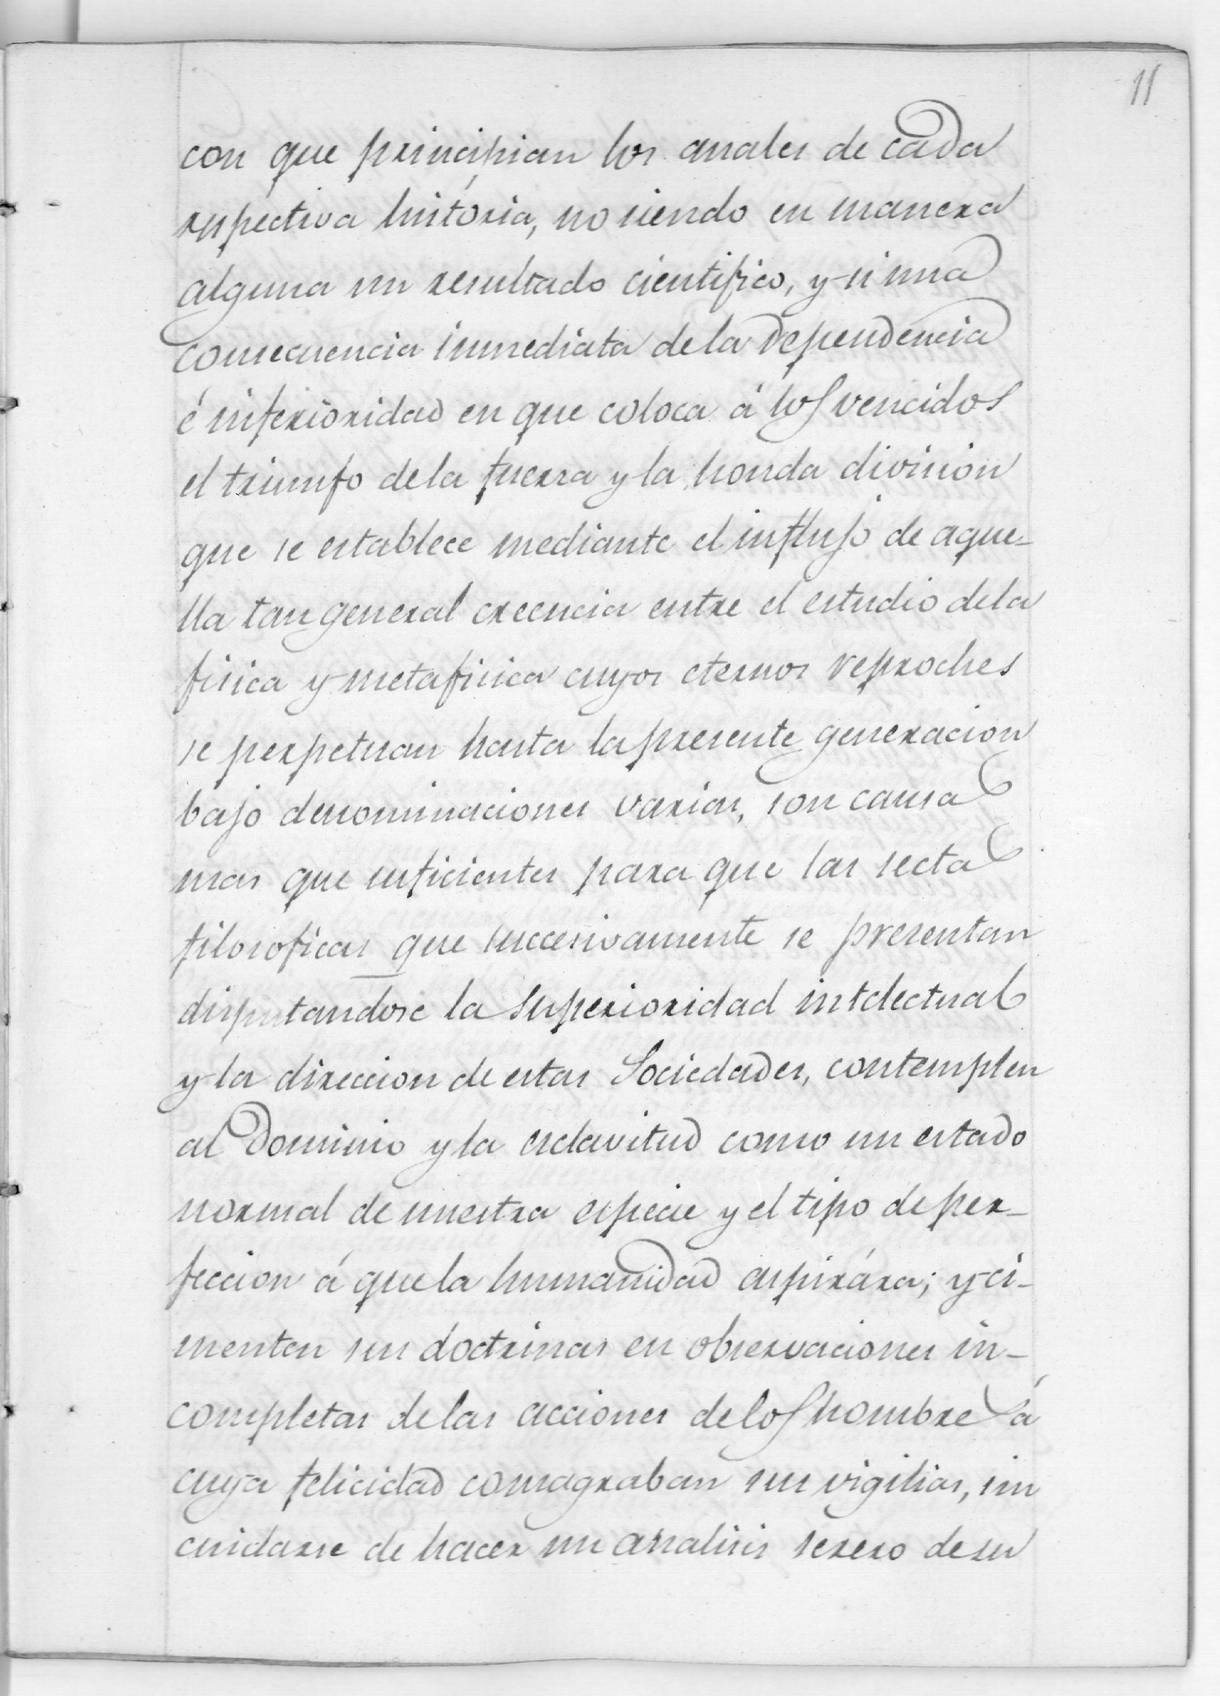 11
con que principian los anales de cada
respectiva história, no siendo en manera
alguna un resultado cientifico, y si una
consecuencia inmediata de la dependencia
é inferioridad en que coloca á los vencidos
el triunfo de la fuerza y la honda division
que se establece mediante el influjo de aque-
lla tan general creencia entre el estudio de la
fisica y metafisica cuyos eternos reproches
se perpetuan hasta la presente generacion
bajo denominaciones varias, son causas
mas que suficientes para que las sectas
filosoficas que succesivamente se presentan
disputandose la superioridad intelectual
y la direccion de estas Sociedades, contemplen
al Dominio y la esclavitud como un estado
normal de nuestra especie y el tipo de per-
feccion á que la humanidad aspirára; y ci-
menten sus doctrinas en observaciones in-
completas de las acciones de los hombres á
cuya felicidad consagraban sus vigilias, sin
cuidarse de hacer un analisis severo de su